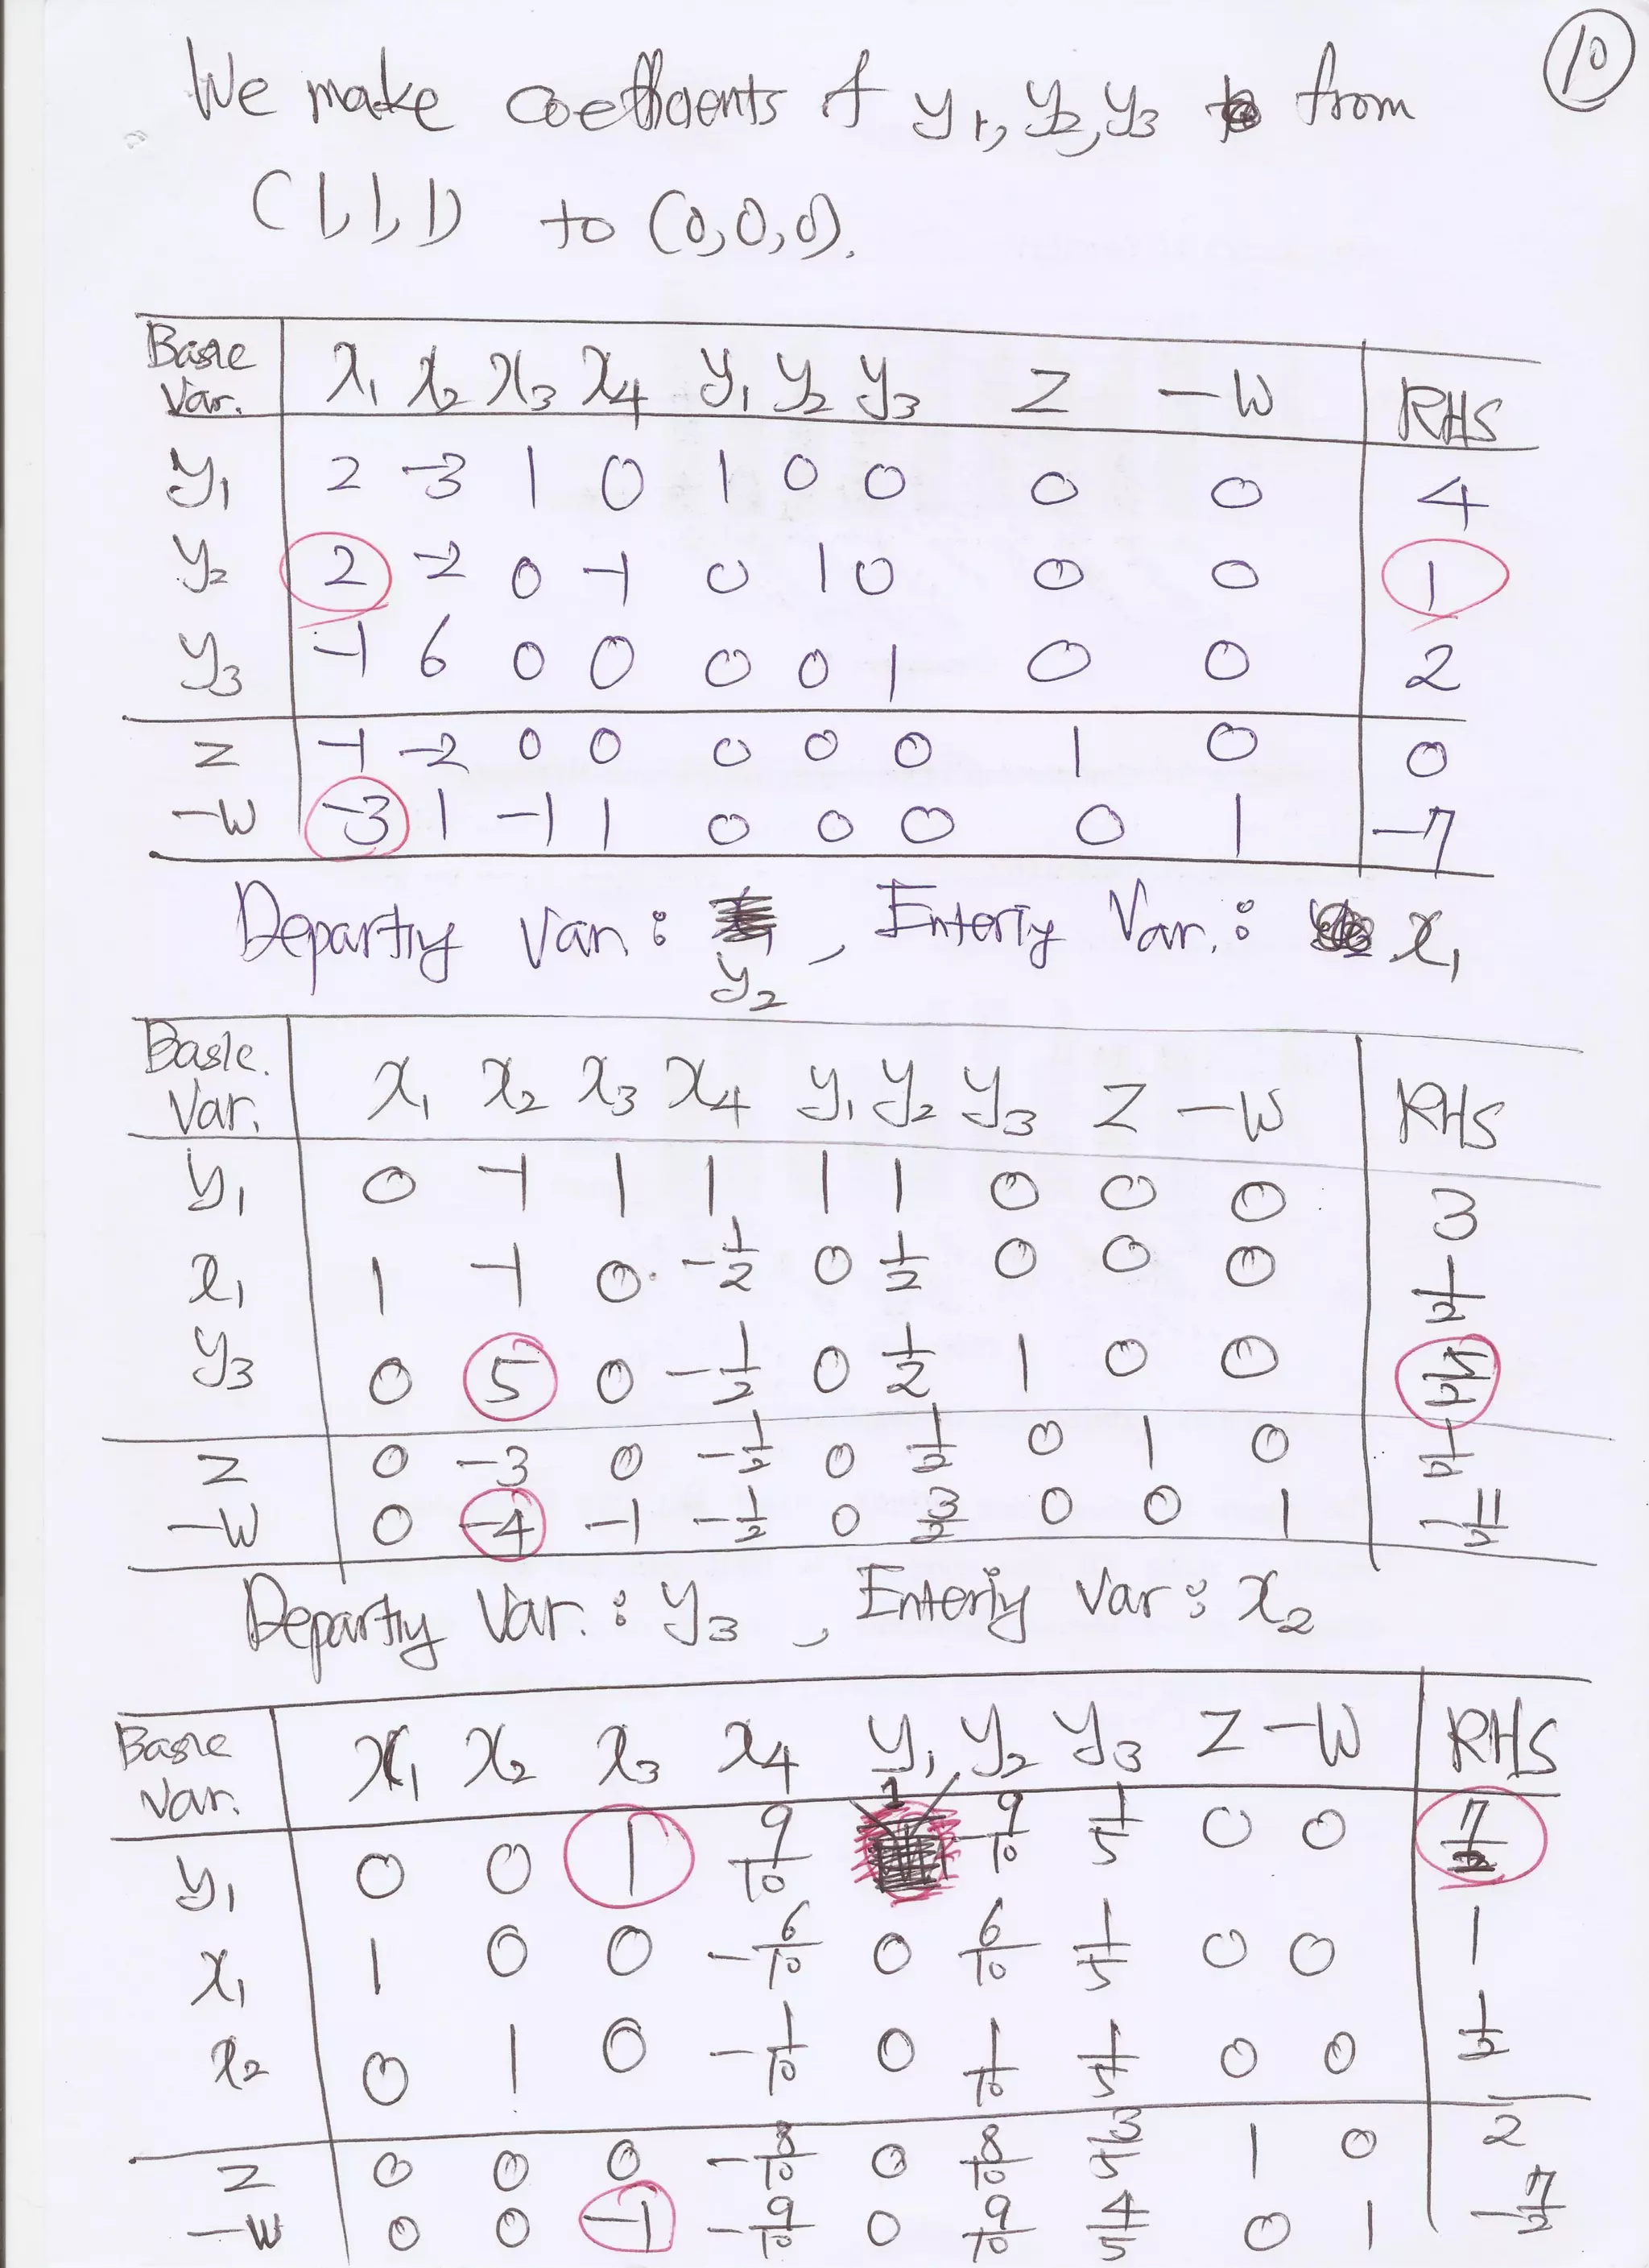 10
We make coefficients of y₁, y₂, y₃ from
(1,1,1) to (0,0,0).
Basic Var. x₁ x₂ x₃ x₄ y₁ y₂ y₃ Z -W RHS
y₁ 2 -3 1 0 1 0 0 0 0 4
y₂ 2 -2 0 -1 0 1 0 0 0 1
y₃ -1 6 0 0 0 0 1 0 0 2
Z -1 -2 0 0 0 0 0 1 0 0
-W -3 1 -1 1 0 0 0 0 1 -7
Departing Var.: y₂, Entering Var.: x₁
Basic Var. x₁ x₂ x₃ x₄ y₁ y₂ y₃ Z -W RHS
y₁ 0 -1 1 1 1 1 0 0 0 3
x₁ 1 -1 0 -1/2 0 1/2 0 0 0 1/2
y₃ 0 5 0 -1/2 0 1/2 1 0 0 5/2
Z 0 -3 0 -1/2 0 1/2 0 1 0 1/2
-W 0 -4 -1 -1/2 0 3/2 0 0 1 -11/2
Departing Var.: y₃, Entering Var: x₂
Basic Var. x₁ x₂ x₃ x₄ y₁ y₂ y₃ Z -W RHS
y₁ 0 0 1 9/10 1 -9/10 1/5 0 0 7/2
x₁ 1 0 0 -6/10 0 6/10 1/5 0 0 1
x₂ 0 1 0 -1/10 0 1/10 1/5 0 0 1/2
Z 0 0 0 -8/10 0 8/10 3/5 1 0 2
-W 0 0 -1 -9/10 0 9/10 4/5 0 1 -7/2